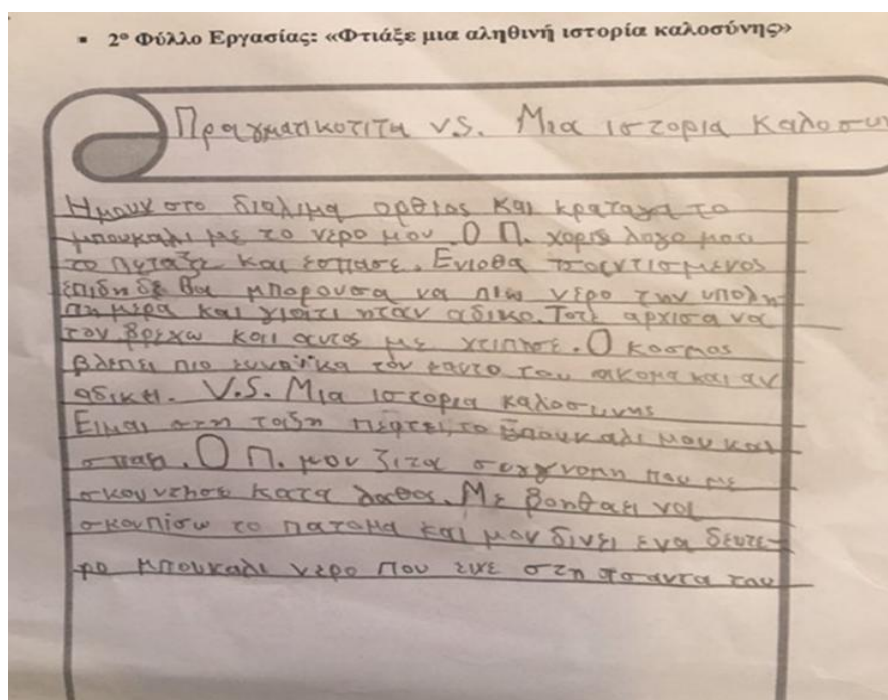 ▪ 2ο Φύλλο Εργασίας: «Φτιάξε μια αληθινή ιστορία καλοσύνης»
Πραγματικοτιτα V.S. Μια ιστορια Καλοσυν
Ημουν στο διαλιμα ορθιος και κραταγα το
μπουκαλι με το νερο μου. Ο Π. χορις λογο μου
το πεταξε και εσπασε. Ενιοθα
επιδη δε θα μπορουσα να πιω νερο την υπολη
πη μερα και γιατι ηταν αδικο. Τοτε αρχισα να
τον βρεχω και αυτος με χτιπησε. Ο κοσμος
βλεπει πιο τον εαυτο του ακομα και αν
αδικει. V.S. Μια ιστορια καλοσυνης
Ειμαι στη ταξη πεφτει το μπουκαλι μου και
σπαει. Ο Π. μου ζιτα συγγνομη που με
σκουντησε κατα λαθος. Με βοηθαει να
σκουπισω το πατομα και μου δινει ενα δευτε-
ρο μπουκαλι νερο που ειχε στη τσαντα του